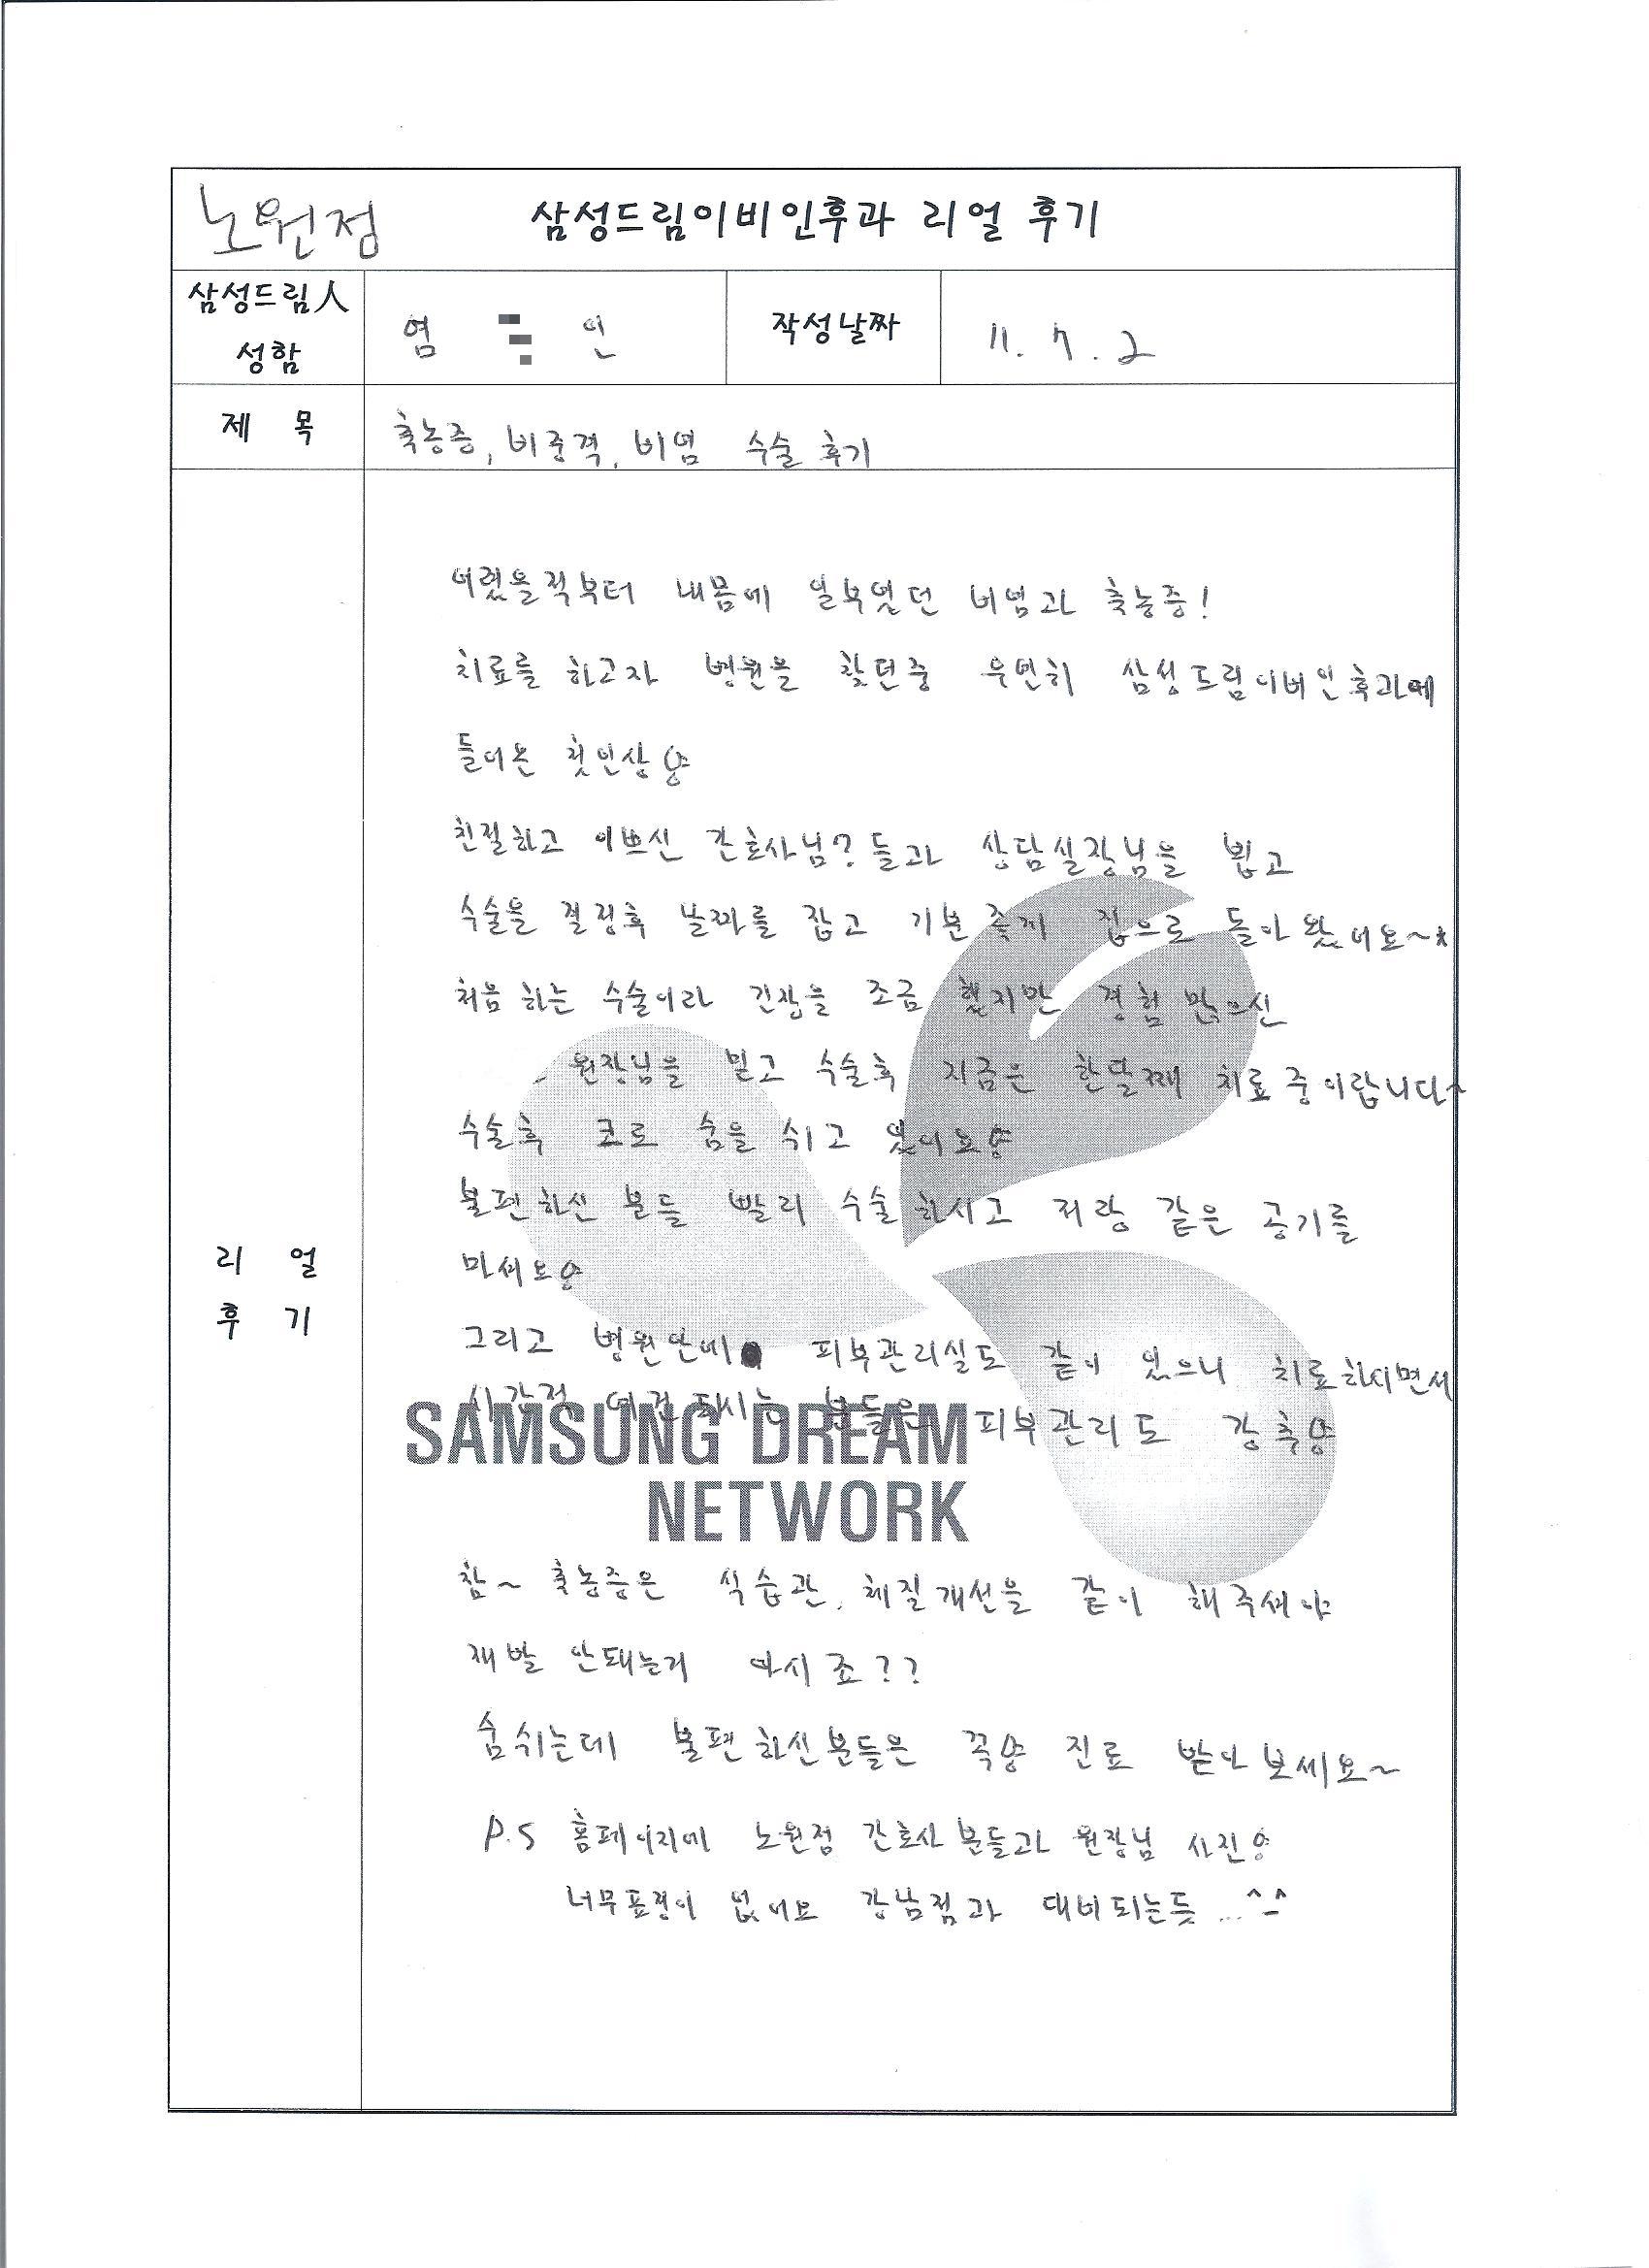 노원점 삼성드림이비인후과 리얼 후기
삼성드림人 성함 염 인 작성날짜 11. 7. 2
제 목 축농증, 비중격, 비염 수술 후기
리 얼 후 기
어렸을적부터 내몸에 일부였던 비염과 축농증!
치료를 하고자 병원을 찾던중 우연히 삼성드림이비인후과에
들어온 첫인상
친절하고 이쁘신 간호사님?들과 상담실장님을 뵙고
수술을 결정후 날짜를 잡고 기분좋게 집으로 돌아왔어요~*
처음하는 수술이라 긴장을 조금 했지만 경험 많으신
원장님을 믿고 수술후 지금은 한달째 치료중이랍니다~
수술후 코로 숨을 쉬고 있어요
불편하신 분들 빨리 수술하시고 저랑 같은 공기를
마셔요
그리고 병원안에 피부관리실도 같이 있으니 치료하시면서
시간적 여건되시는 분들은 피부관리도 강추
SAMSUNG DREAM
NETWORK
참~ 축농증은 식습관, 체질개선을 같이 해주셔야
재발 안돼는거 아시죠??
숨쉬는데 불편하신분들은 꼭 진료 받아보세요~
P.S 홈페이지에 노원점 간호사분들과 원장님 사진
너무표정이 없어요 강남점과 대비되는듯...^-^